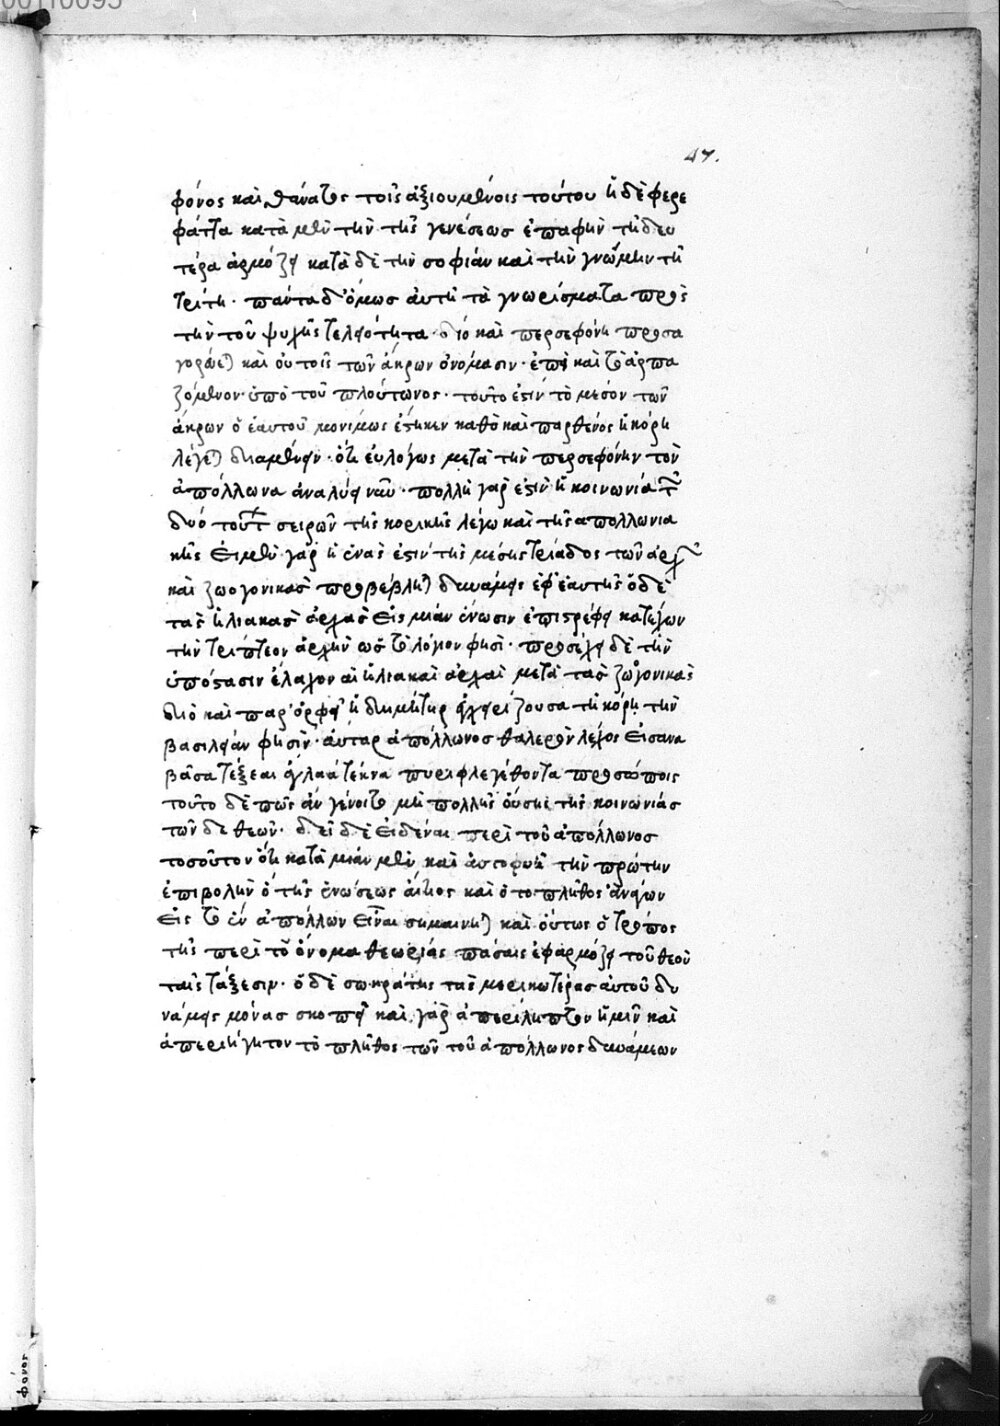 47.
φόνος καὶ θάνατος τοῖς ἀξιουμένοις τούτου ἡ δὲ φερε
φάττα κατὰ μὲν τὴν τῆς γενέσεως ἐπαφὴν τῇ δευ
τέρα ἁρμόζει κατὰ δὲ τὴν σοφίαν καὶ τὴν γνώμην τῇ
τρίτη. πάντα δ' ὅμως αὐτῇ τὰ γνωρίσματα πρὸς
τὴν τοῦ ψυχῆς τελειότητα. διό καὶ περσεφόνη προσα
γορεύεται καὶ οὐ τοῖς τῶν ἄκρων ὀνόμασιν. ἐπεὶ καὶ τὸ ἁρπα
ζόμενον ὑπὸ τοῦ πλούτωνος. τοῦτο ἐστίν τὸ μέσον τῶν
ἄκρων ὃ ἑαυτοῦ μονίμως ἕστηκεν καθὸ καὶ παρθένος ἡ κόρη
λέγεται διαμένειν. ὅτι εὐλόγως μετὰ τὴν περσεφόνην τὸν
ἀπόλλωνα ἀναλύει νῦν. πολλὴ γάρ ἐστιν ἡ κοινωνία τῶν
δυό τούτων σειρῶν τῆς κορικῆς λέγω καὶ τῆς ἀπολλωνια
κῆς εἰ μὲν γὰρ ἡ ἑνὰς ἐστίν τῆς μέσης τριάδος τῶν ἀρχῶν
καὶ ζωογονικὰς προβέβληται δυνάμεις ἐφ' ἑαυτῆς ὁ δὲ
τὰς ἡλιακὰς ἀρχὰς εἰς μίαν ἕνωσιν ἐπιστρέφει κατέχων
τὴν τρίπτεον ἀρχὴν ὡς τὸ λόγιον φησὶ. προσέχει δὲ τὴν
ὑπόστασιν ἔλαχον αἱ ἡλιακαὶ ἀρχαὶ μετὰ τὰς ζωογονικὰς
διὸ καὶ παρ' ὀρφεῖ ἡ δημήτηρ ἐγχειρίζουσα τῇ κόρῃ τὴν
βασιλείαν φησὶν. αὐτὰρ ἀπόλλωνος θαλερὸν λέχος εἰσανα
βᾶσα τέξεαι ἀγλαὰ τέκνα πυριφλεγέθοντα προσώποις
τοῦτο δὲ πῶς ἂν γένοιτο μὴ πολλῆς οὔσης τῆς κοινωνίας
τῶν δε θεῶν. δεῖ δὲ εἰδέναι περὶ τοῦ ἀπόλλωνος
τοσοῦτον ὅτι κατὰ μίαν μὲν καὶ αὐτοφυῆ τὴν πρώτην
ἐπιβολὴν ὁ τῆς ἑνώσεως αἴτιος καὶ ὁ το πλῆθος ἀνάγων
εἰς τὸ ἓν ἀπόλλων εἶναι σημαίνεται καὶ οὕτως ὁ τρόπος
τῆς περὶ τὸ ὄνομα θεωρίας πάσαις ἐφαρμόζει τοῦ θεοῦ
ταῖς τάξεσιν. ὁ δὲ σωκράτης τὰς μερικωτέρας αὐτοῦ δυ
νάμεις μόνας σκοπεῖ καὶ γὰρ ἀπερίληπτον ἡμῖν καὶ
ἀπεριήγητον τὸ πλῆθος τῶν τοῦ ἀπόλλωνος δυνάμεων
φόνος